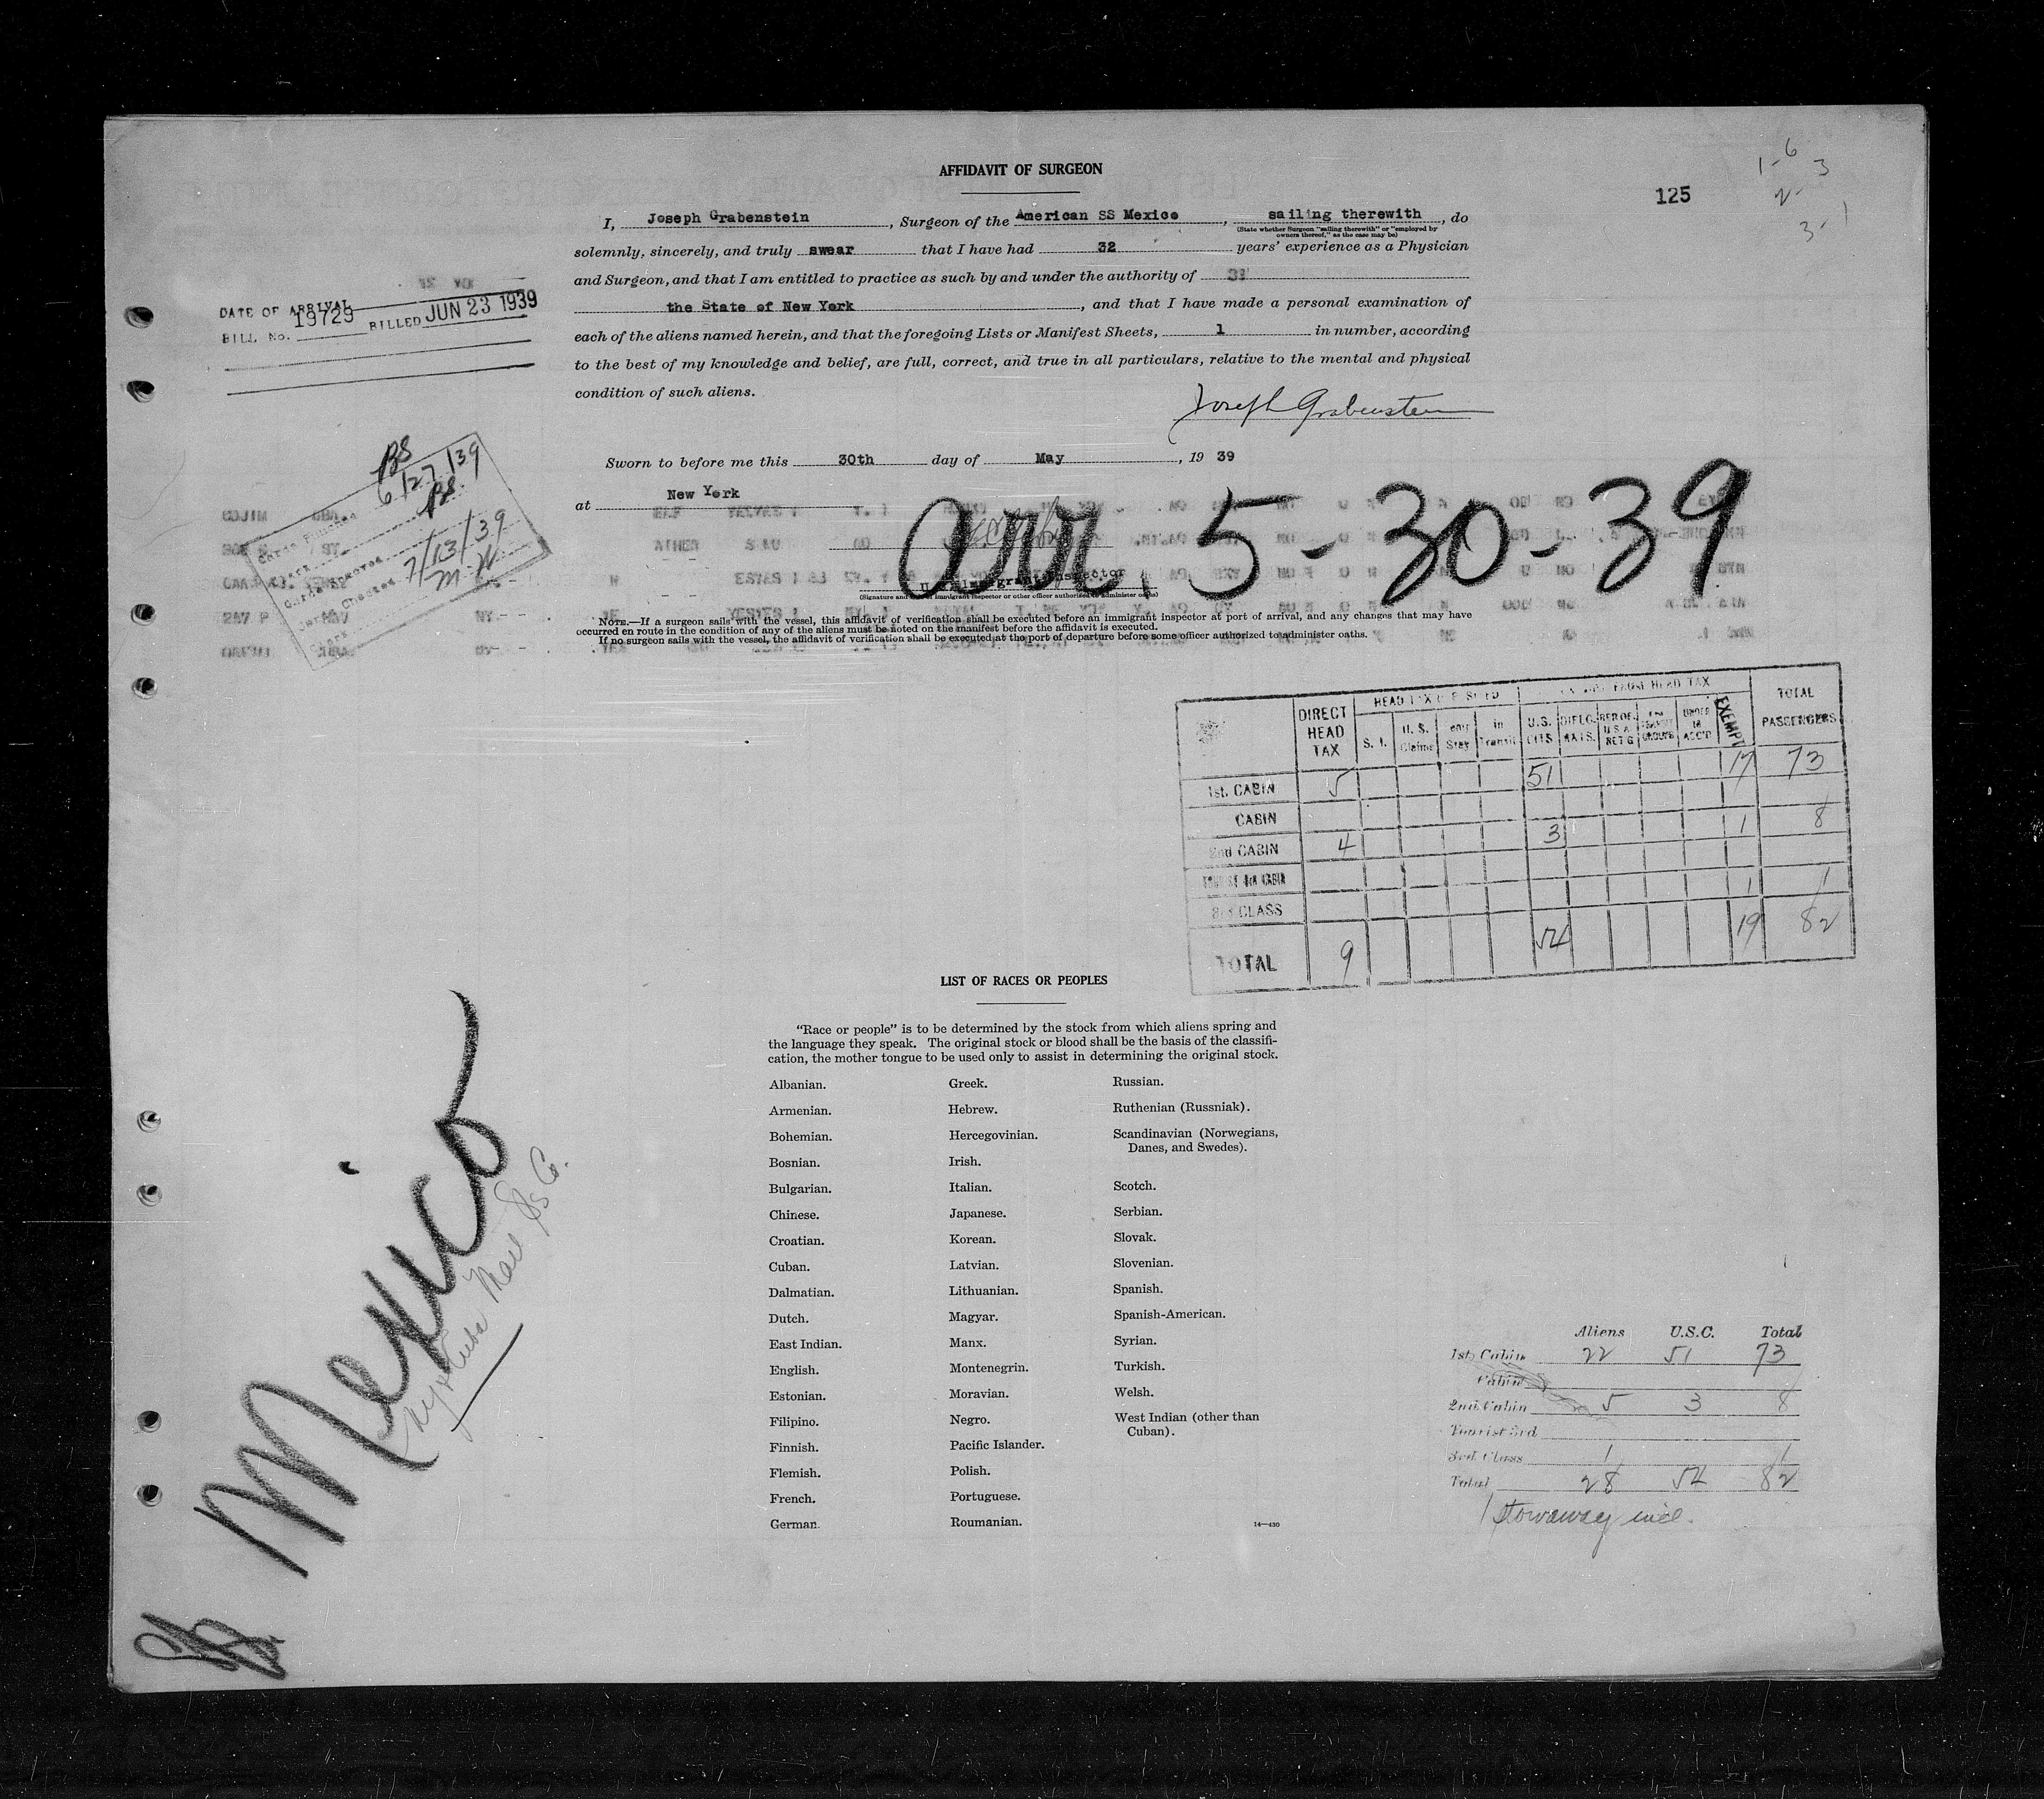 AFFIDAVIT OF SURGEON
125
1-6
3
2-
3-1
I, Joseph Grabenstein, Surgeon of the American SS Mexico, sailing therewith, do
(State whether Surgeon "sailing therewith" or "employed by
owners thereof," as the case may be)
solemnly, sincerely, and truly swear that I have had 32 years' experience as a Physician
and Surgeon, and that I am entitled to practice as such by and under the authority of
the State of New York, and that I have made a personal examination of
each of the aliens named herein, and that the foregoing Lists or Manifest Sheets, 1 in number, according
to the best of my knowledge and belief, are full, correct, and true in all particulars, relative to the mental and physical
condition of such aliens.
Joseph Grabenstein
DATE OF ARRIVAL
BILL No. 19729 BILLED JUN 23 1939
Sworn to before me this 30th day of May, 19 39
at New York
arr. 5-30-39
BS
6/27/39
BS.
7/13/39
M.W.
Immigrant Inspector
NOTE.—If a surgeon sails with the vessel, this affidavit of verification shall be executed before an immigrant inspector at port of arrival, and any changes that may have
occurred en route in the condition of any of the aliens must be noted on the manifest before the affidavit is executed.
If no surgeon sails with the vessel, the affidavit of verification shall be executed at the port of departure before some officer authorized to administer oaths.
DIRECT HEAD TAX
S. I.
U. S. Claims
in Transit
U.S. CITS.
EXEMPT
TOTAL PASSENGERS
1st. CABIN 5 51 17 73
CABIN
2nd CABIN 4 3 1 8
3rd CLASS 1 1
TOTAL 9 54 19 82
LIST OF RACES OR PEOPLES
"Race or people" is to be determined by the stock from which aliens spring and
the language they speak. The original stock or blood shall be the basis of the classifi-
cation, the mother tongue to be used only to assist in determining the original stock.
Albanian.
Armenian.
Bohemian.
Bosnian.
Bulgarian.
Chinese.
Croatian.
Cuban.
Dalmatian.
Dutch.
East Indian.
English.
Estonian.
Filipino.
Finnish.
Flemish.
French.
German.
Greek.
Hebrew.
Hercegovinian.
Irish.
Italian.
Japanese.
Korean.
Latvian.
Lithuanian.
Magyar.
Manx.
Montenegrin.
Moravian.
Negro.
Pacific Islander.
Polish.
Portuguese.
Roumanian.
Russian.
Ruthenian (Russniak).
Scandinavian (Norwegians,
Danes, and Swedes).
Scotch.
Serbian.
Slovak.
Slovenian.
Spanish.
Spanish-American.
Syrian.
Turkish.
Welsh.
West Indian (other than
Cuban).
14—430
Mexico
Ny & Cuba Mail SS Co.
Aliens U.S.C. Total
1st Cabin 22 51 73
Cabin
2nd Cabin 5 3 8
Tourist 3rd
3rd Class 1 1
Total 28 54 82
1 Stowaway incl.